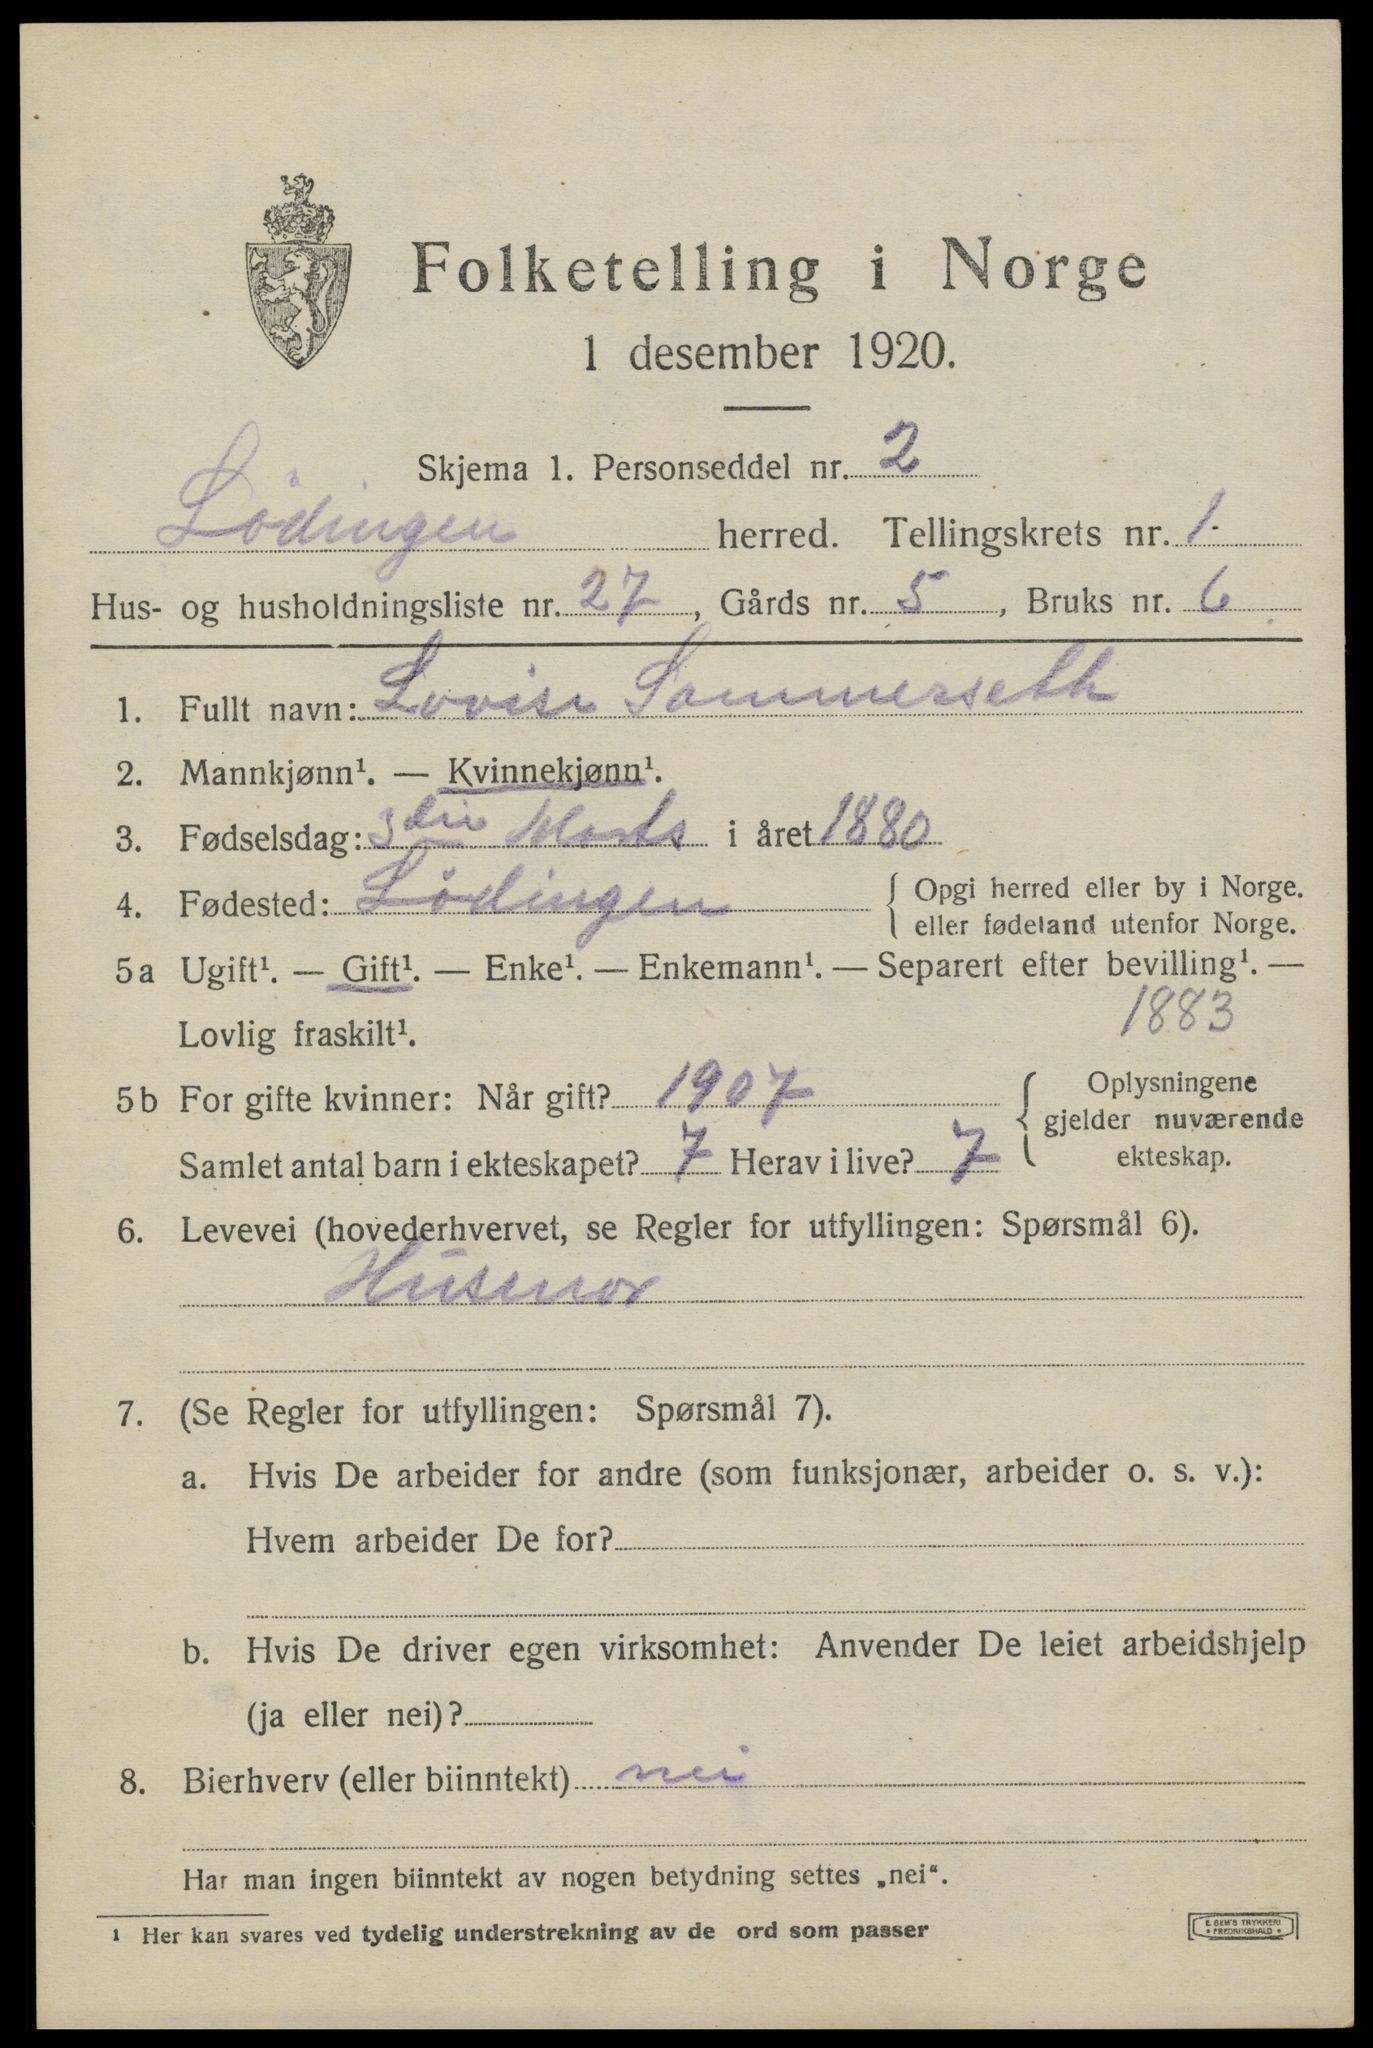 Folketelling i Norge
1 desember 1920.
Skjema 1. Personseddel nr. 2
Lödingen herred. Tellingskrets nr. 1.
Hus- og husholdningsliste nr. 27, Gårds nr. 5, Bruks nr. 6
1. Fullt navn: Lovise Sommerseth
2. Mannkjønn¹. — Kvinnekjønn¹.
3. Fødselsdag: 3die Marts i året 1880
4. Fødested: Lödingen { Opgi herred eller by i Norge.
eller fødeland utenfor Norge.
5a Ugift¹. — Gift¹. — Enke¹. — Enkemann¹. — Separert efter bevilling¹. —
Lovlig fraskilt¹. 1883
5b For gifte kvinner: Når gift? 1907
Samlet antal barn i ekteskapet? 7 Herav i live? 7
{ Oplysningene
gjelder nuværende
ekteskap.
6. Levevei (hovederhvervet, se Regler for utfyllingen: Spørsmål 6).
Husmor
7. (Se Regler for utfyllingen: Spørsmål 7).
a. Hvis De arbeider for andre (som funksjonær, arbeider o. s. v.):
Hvem arbeider De for?
b. Hvis De driver egen virksomhet: Anvender De leiet arbeidshjelp
(ja eller nei)?
8. Bierhverv (eller biinntekt) nei
Har man ingen biinntekt av nogen betydning settes „nei“.
¹ Her kan svares ved tydelig understrekning av de ord som passer
E. SEM'S TRYKKERI
• FREDRIKSHALD •